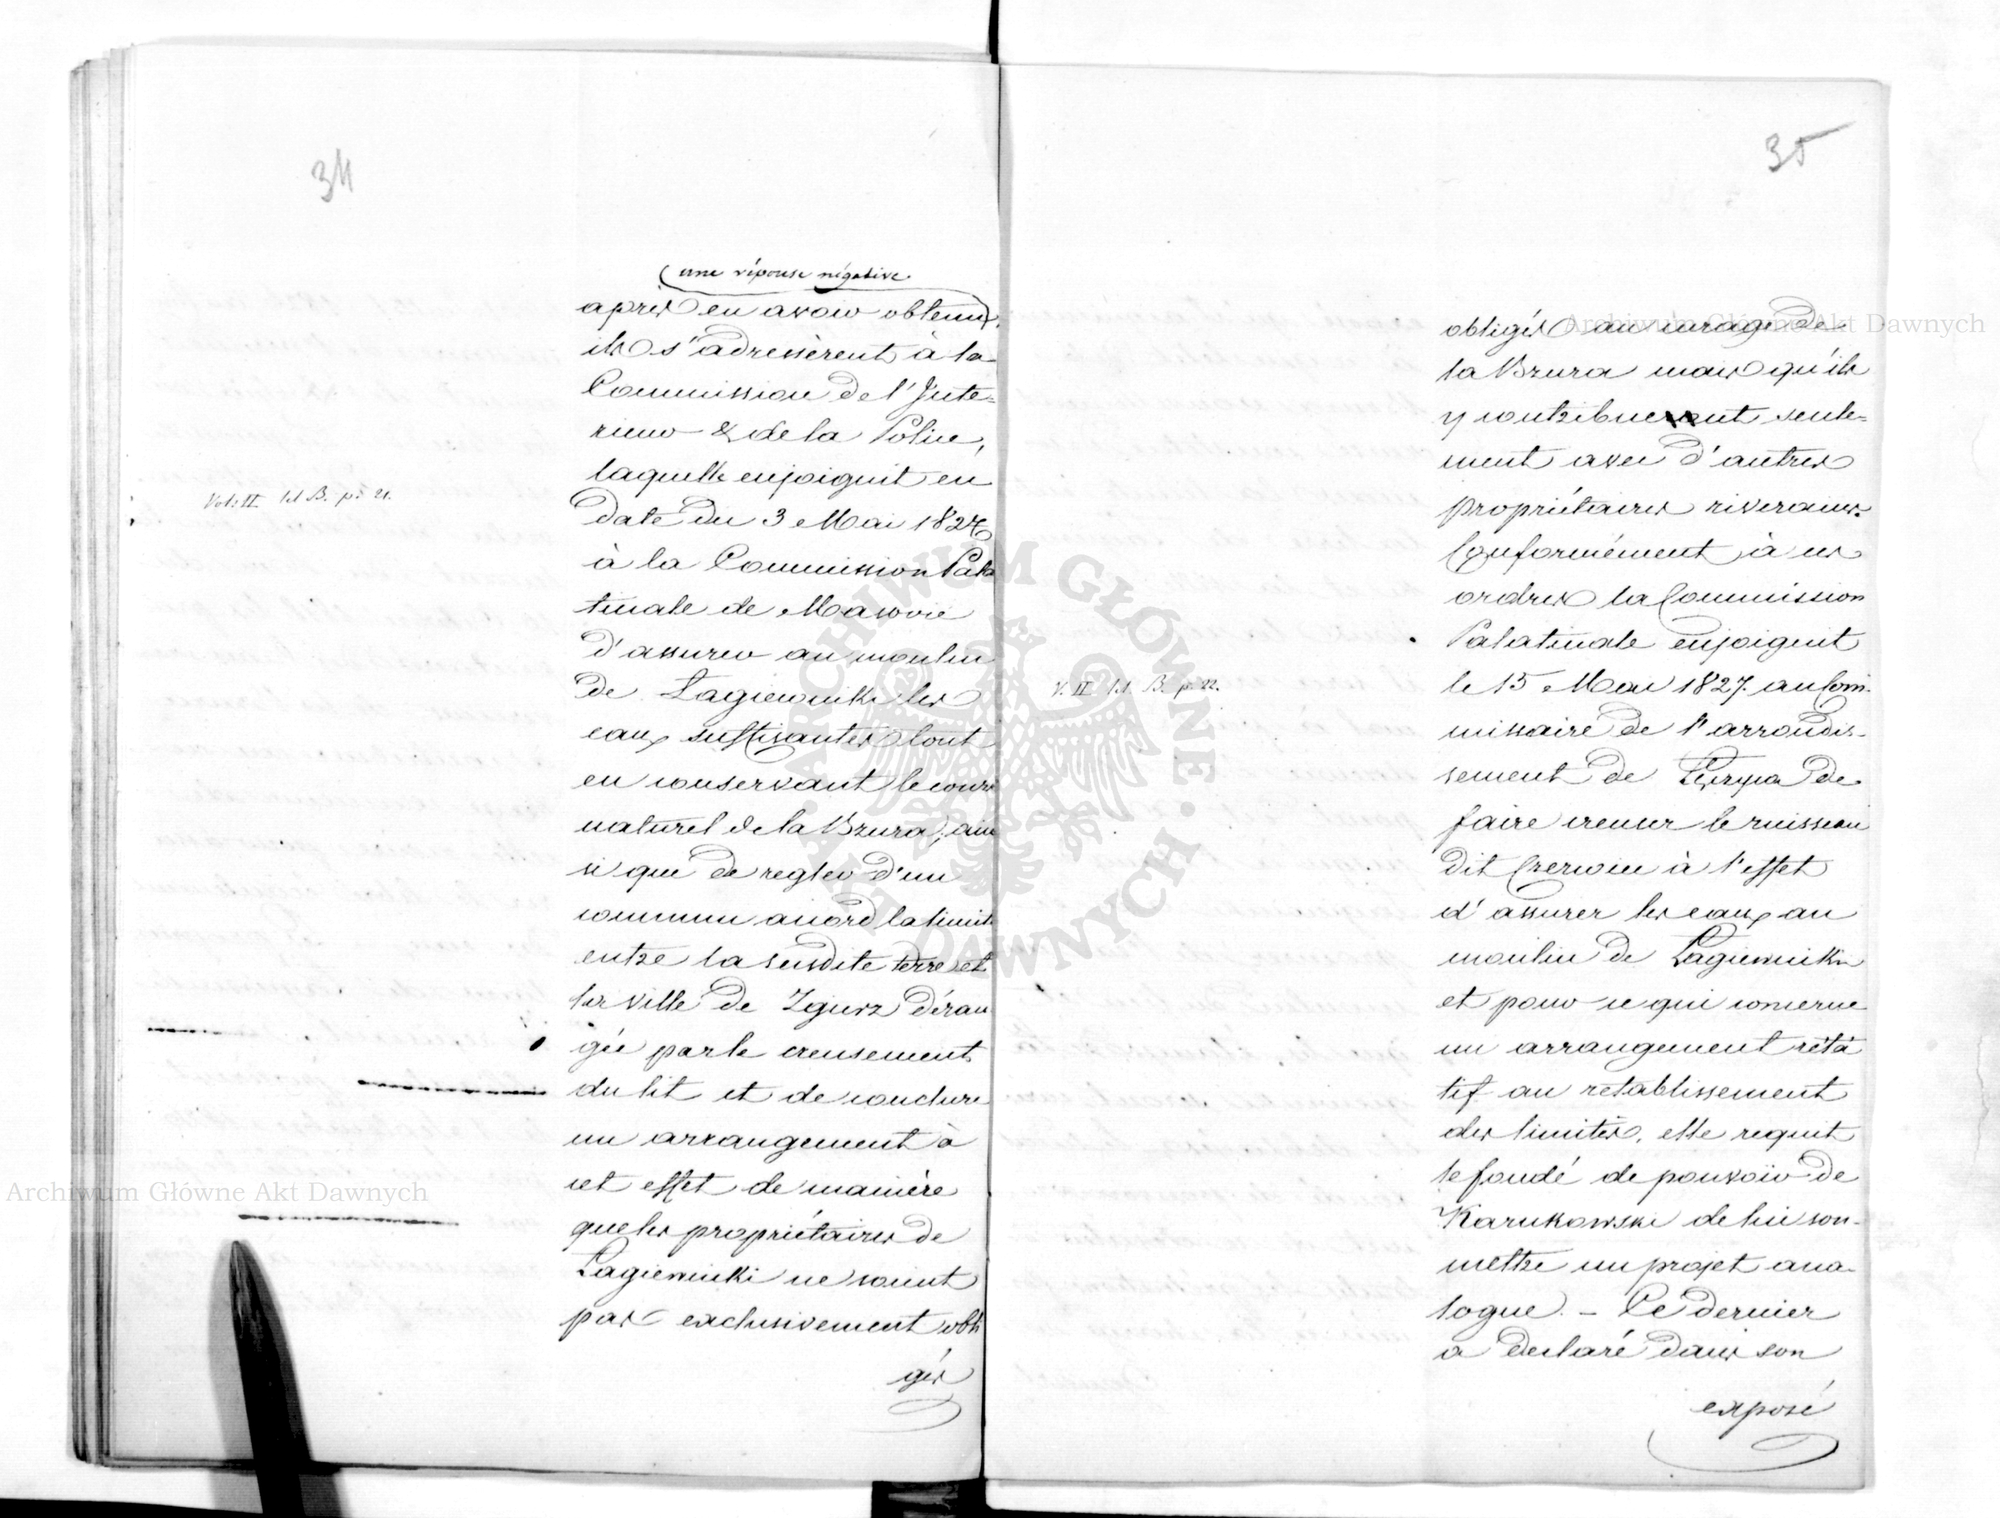 34
une réponse négative
après en avoir obtenu,
ils s'adressèrent à la
Commission de l'Inte=
rieur & de la Police,
laquelle enjoignit en
Vol: II lit B. p. 21.
date du 3 Mai 1827
à la Commission Pala
tinale de Masovie
d'assurer au moulin
de Łagiewniki les
eaux suffisantes tout
en conservant le cours
naturel de la Bzura, ain
si que de regler d'un
commun accord la limite
entre la susdite terre et
la ville de Zgierz déran
gée par le creusement
du lit et de conclure
un arrangement à
cet effet de manière
que les propriétaires de
Łagiewniki ne soient
pas exclusivement obli
gés
35
obligés au curage de
la Bzura mais qu'ils
y contribuent seule=
ment avec d'autres
propriétaires riverains.
Conformément à ces
ordres la Commission
Palatinale enjoignit
V. II lit. B. p. 22.
le 15 Mai 1827. au Com-
missaire de l'arrondis-
sement de Łęczyca de
faire creuser le ruisseau
dit Czerwin à l'effet
d'assurer les eaux au
moulin de Łagiewniki
et pour ce qui concerne
un arrangement réla
tif au retablissement
des limites, elle requit
le fondé de pouvoir de
Karnkowski de lui sou-
mettre un projet ana-
logue. – Ce dernier
a declaré dans son
exposé
Archiwum Główne Akt Dawnych
Archiwum Główne Akt Dawnych
ARCHIWUM GŁÓWNE · AKT DAWNYCH ·